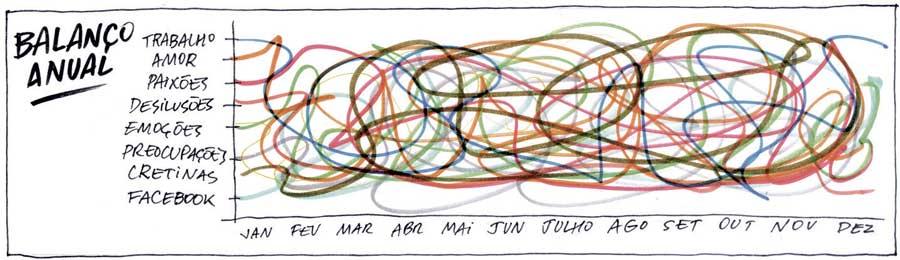 BALANÇO
ANUAL
TRABALHO
AMOR
PAIXÕES
DESILUSÕES
EMOÇÕES
PREOCUPAÇÕES
CRETINAS
FACEBOOK
JAN FEV MAR ABR MAI JUN JULHO AGO SET OUT NOV DEZ